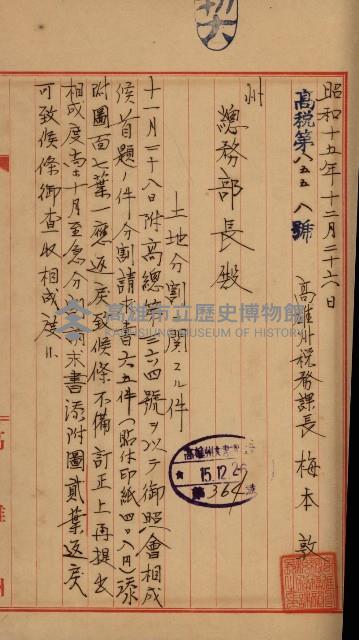 昭和十五年十二月二十六日
高税第八五五八號
高雄州税務課長 梅本敦
州
總務部長殿
土地分割ニ関スル件
十一月二十八日附高總 第三六四號ヲ以テ御照會相成
候首題ノ件分割請求書六五件(貼付印紙四、八円)添
附圖面七葉一應返戻致候條不備訂正上再提出
相成度 十月至急分 求書添附圖貳葉返戻
可致候條御査収相成度
高雄市立歷史博物館
KAOHSIUNG MUSEUM OF HISTORY
15.12.26
第364號
高雄州